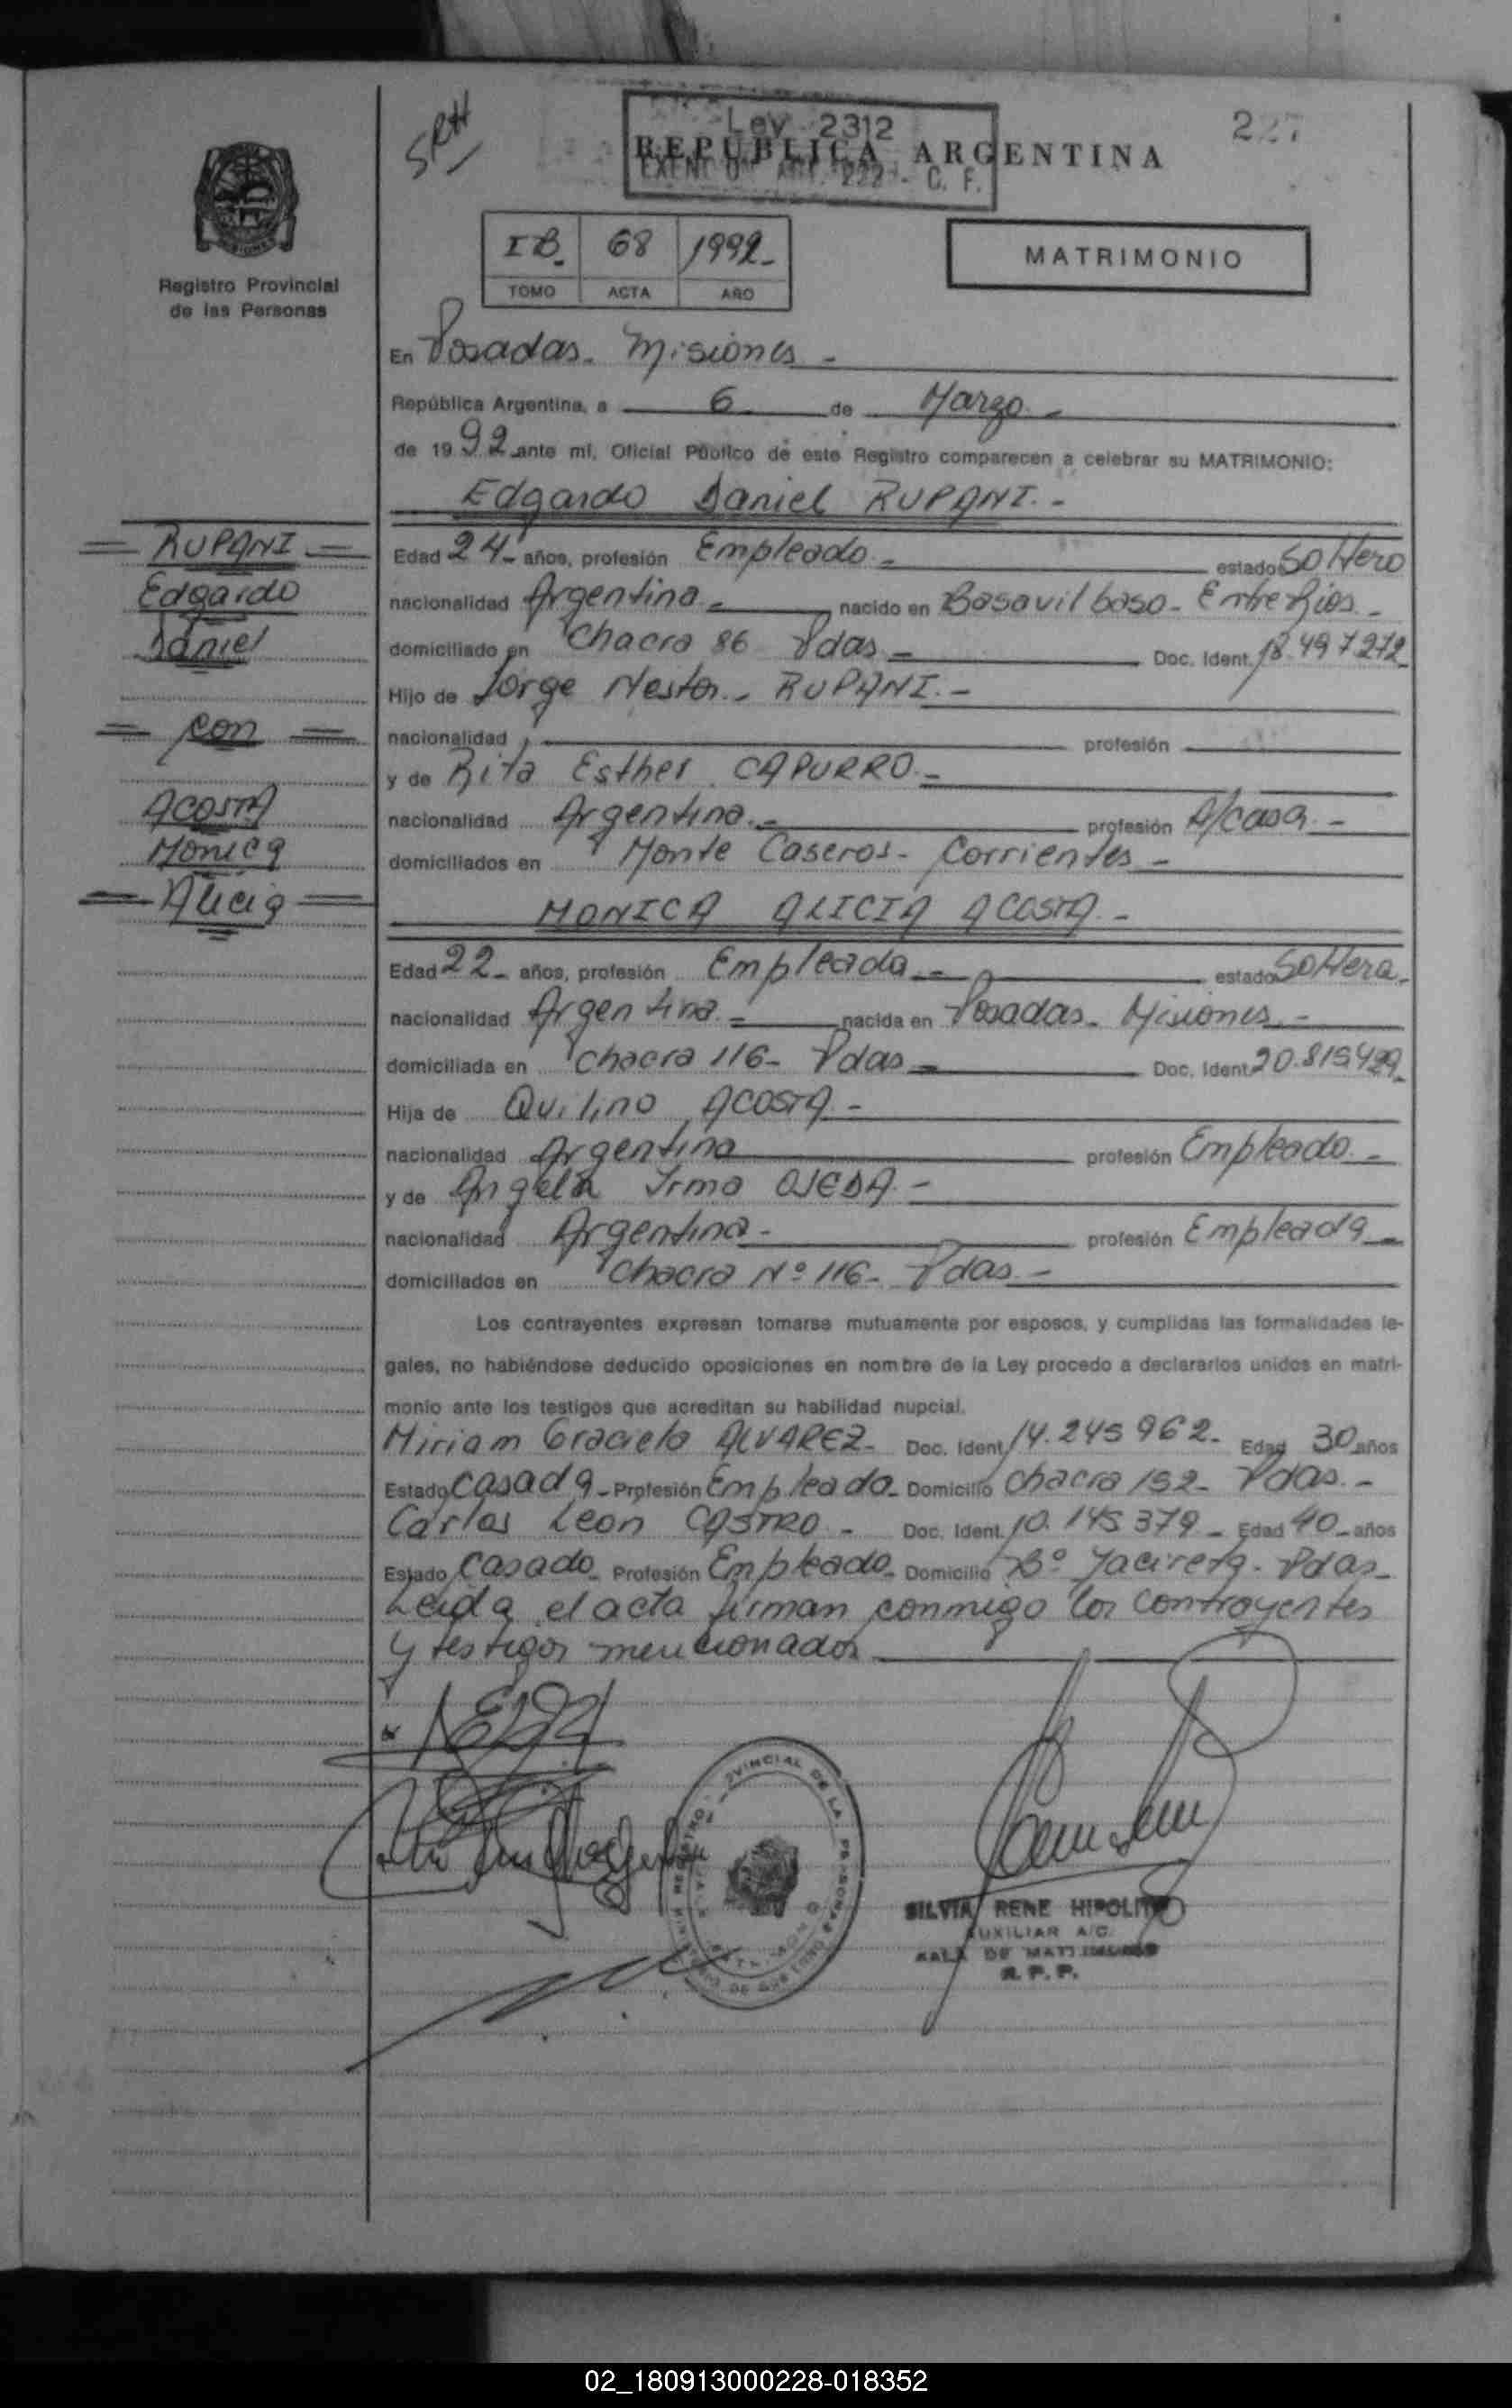 SRH
Ley 2312
REPUBLICA ARGENTINA
ART. 222 - C. F.
227
IB. 68 1992-
TOMO ACTA AÑO
MATRIMONIO
Registro Provincial
de las Personas
En Posadas - Misiones -
República Argentina, a 6 de Marzo -
de 1992 ante mí, Oficial Público de este Registro comparecen a celebrar su MATRIMONIO:
Edgardo Daniel RUPANI. -
= RUPANI =
Edgardo
Daniel
= con =
ACOSTA
Monica
= Alicia =
Edad 24- años, profesión Empleado - estado Soltero
nacionalidad Argentina - nacido en Basavilbaso - Entre Rios -
domiciliado en Chacra 86 Pdas - Doc. Ident. 18.497272
Hijo de Jorge Nestor - RUPANI. -
nacionalidad profesión
y de Rita Esther CAPURRO. -
nacionalidad Argentina. - profesión A/casa. -
domiciliados en Monte Caseros - Corrientes -
MONICA ALICIA ACOSTA -
Edad 22- años, profesión Empleada - estado Soltera -
nacionalidad Argentina - nacida en Posadas - Misiones. -
domiciliada en Chacra 116 - Pdas - Doc. Ident. 20.815429
Hija de Quilino ACOSTA. -
nacionalidad Argentina profesión Empleado. -
y de Angela Irma OJEDA. -
nacionalidad Argentina - profesión Empleada -
domiciliados en Chacra Nº 116 - Pdas. -
Los contrayentes expresan tomarse mutuamente por esposos, y cumplidas las formalidades le-
gales, no habiéndose deducido oposiciones en nombre de la Ley procedo a declararlos unidos en matri-
monio ante los testigos que acreditan su habilidad nupcial.
Miriam Graciela ALVAREZ - Doc. Ident. 14.245962 - Edad 30 años
Estado Casada - Profesión Empleada - Domicilio Chacra 152 - Pdas. -
Carlos Leon CASTRO - Doc. Ident. 10.145379 - Edad 40 - años
Estado Casado - Profesión Empleado - Domicilio Bº Yacireta - Pdas -
Leida el acta firman conmigo los contrayentes
y testigos mencionados
SILVIA RENE HIPOLITO
AUXILIAR A/C.
SALA DE MATRIMONIOS
R. P. P.
02_180913000228-018352